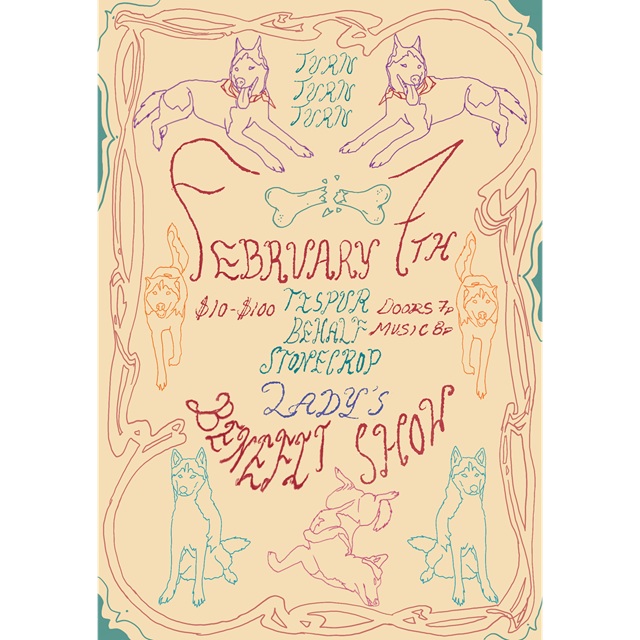 TURN
TURN
TURN
FEBRUARY 7TH
$10-$100
TISPUR
BEHALF
STONECROP
DOORS 7P
MUSIC 8P
LADY'S
BENEFIT SHOW